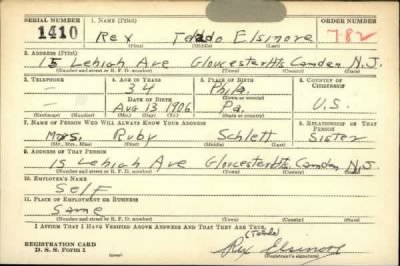 SERIAL NUMBER 1. NAME (Print) ORDER NUMBER
1410 Rex Toddo Elsinore 782
(First) (Middle) (Last)
2. ADDRESS (Print)
15 Lehigh Ave Gloucester Hts Camden N.J.
(Number and street or R. F. D. number) (Town) (County) (State)
3. TELEPHONE 4. AGE IN YEARS 5. PLACE OF BIRTH 6. COUNTRY OF CITIZENSHIP
— 34 Phila.
DATE OF BIRTH
— Aug 13 1906 Pa. U.S.
(Exchange) (Number) (Mo.) (Day) (Yr.) (State or country)
7. NAME OF PERSON WHO WILL ALWAYS KNOW YOUR ADDRESS 8. RELATIONSHIP OF THAT PERSON
Mrs. Ruby Schlett Sister
(Mr., Mrs., Miss) (First) (Middle) (Last)
9. ADDRESS OF THAT PERSON
15 Lehigh Ave Gloucester Hts. Camden N.J
(Number and street or R. F. D. number) (Town) (County) (State)
10. EMPLOYER'S NAME
Self
11. PLACE OF EMPLOYMENT OR BUSINESS
Same
(Number and street or R. F. D. number) (Town) (County) (State)
I AFFIRM THAT I HAVE VERIFIED ABOVE ANSWERS AND THAT THEY ARE TRUE.
REGISTRATION CARD
D. S. S. Form 1 (over) Rex Elsinore
(Registrant's signature)